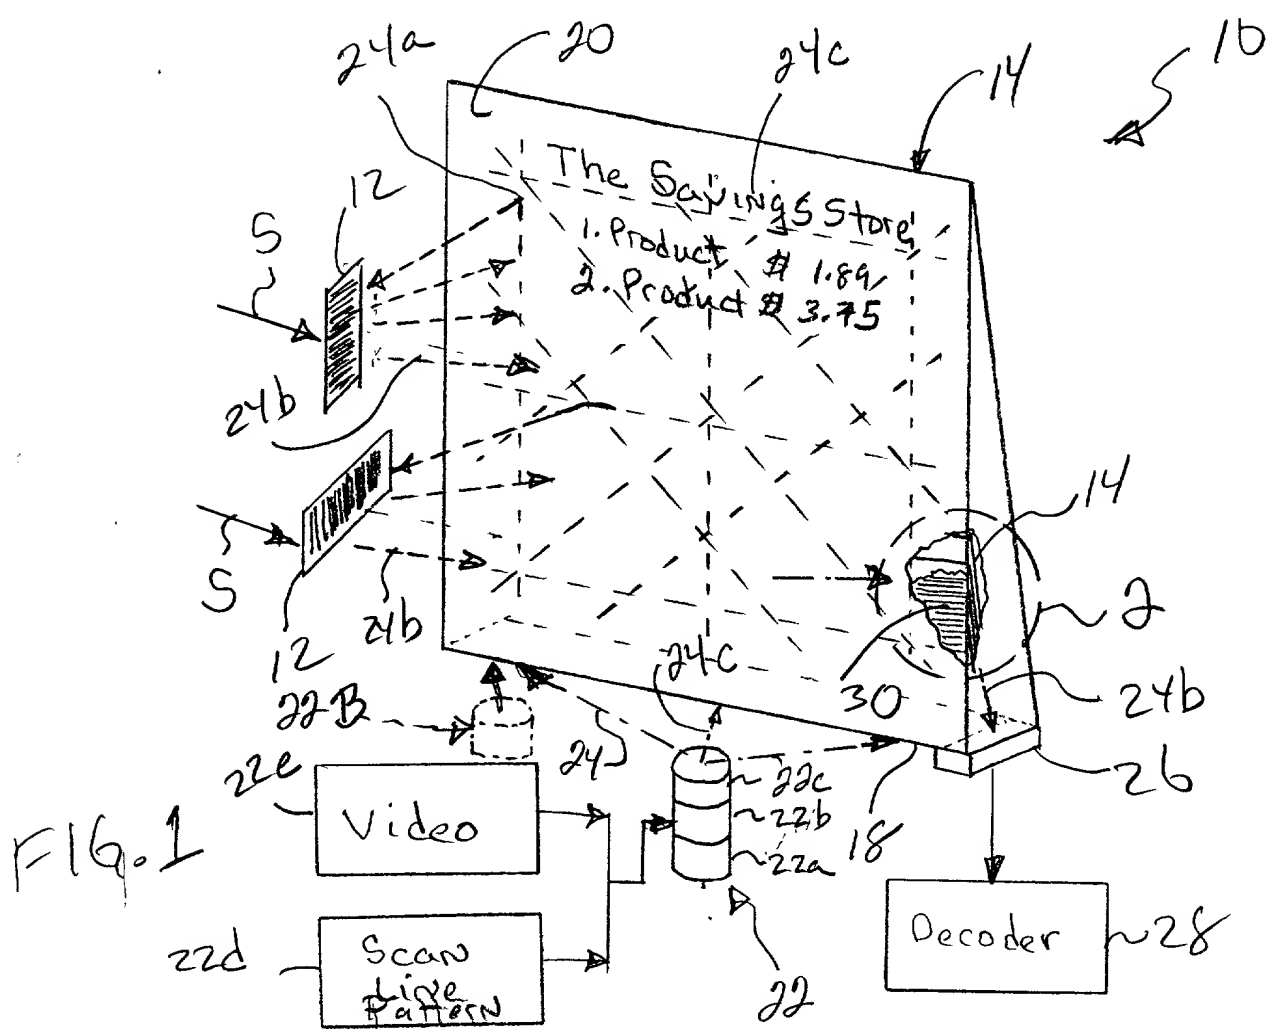 24a
20
24c
14
10
The Savings Store
1. Product $ 1.89
2. Product $ 3.75
12
S
24b
14
S
12
24b
24c
2
30
24b
22B
24
18
26
22e
Video
22c
22b
22a
FIG. 1
22d
Scan
Line
Pattern
22
Decoder
28